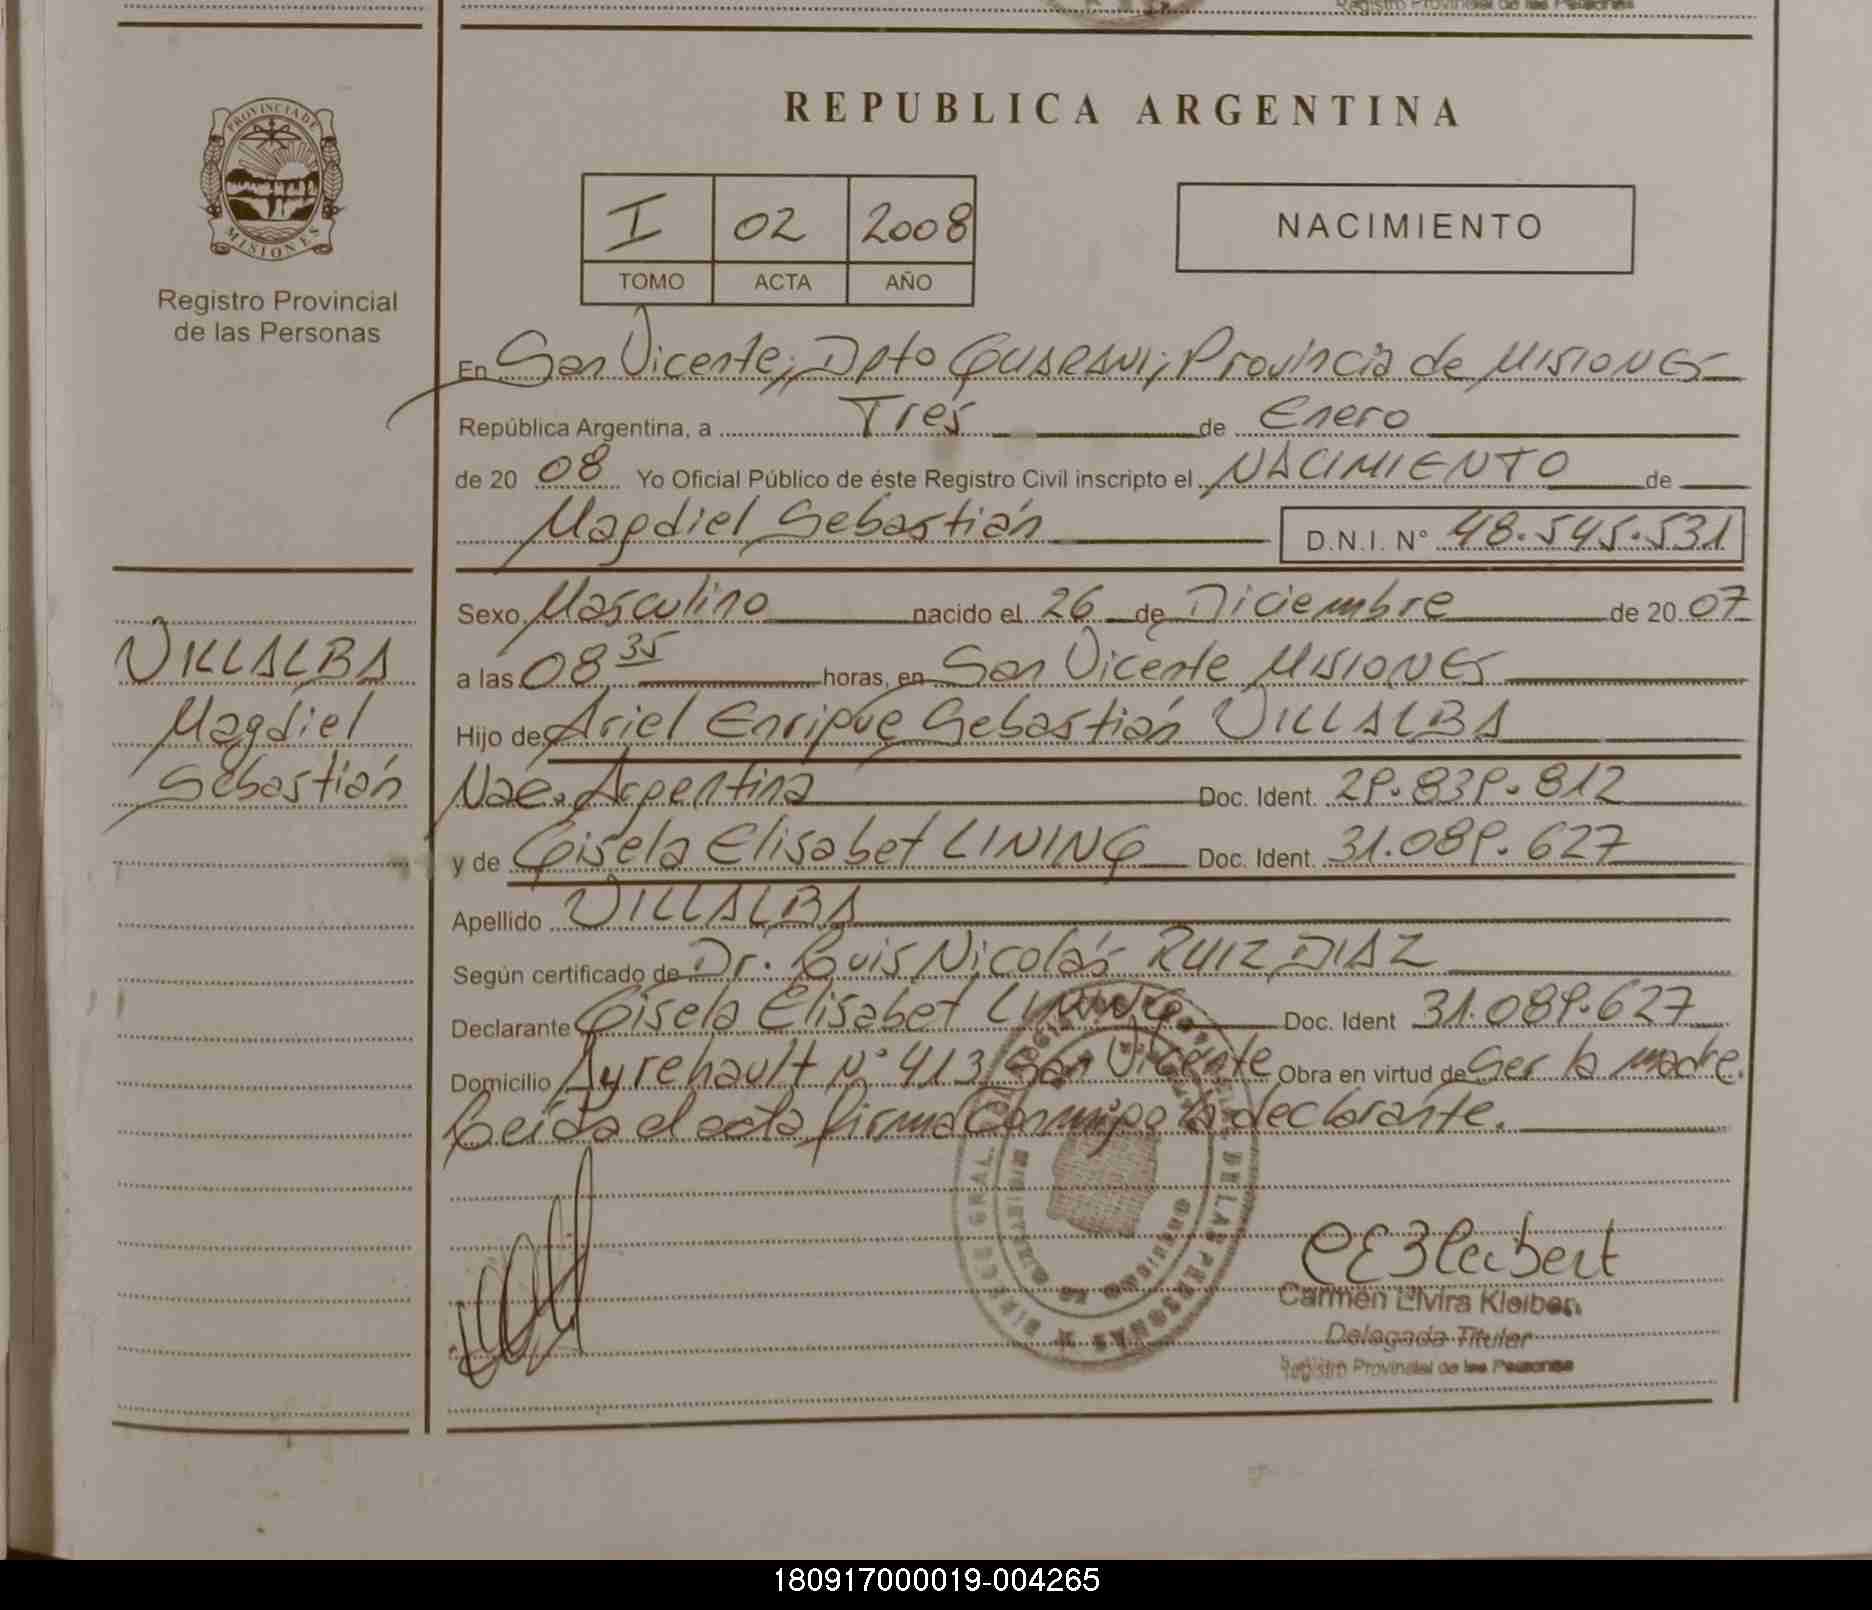 Registro Provincial de las Personas
REPUBLICA ARGENTINA
PROVINCIA DE
MISIONES
Registro Provincial
de las Personas
I 02 2008
TOMO ACTA AÑO
NACIMIENTO
En San Vicente, Dpto GUARANI, Provincia de MISIONES
República Argentina, a Tres de Enero
de 20 08 Yo Oficial Público de éste Registro Civil inscripto el NACIMIENTO de
Magdiel Sebastián D.N.I. N° 48.545.531
Sexo Masculino nacido el 26 de Diciembre de 20 07
a las 08 35 horas, en San Vicente MISIONES
Hijo de Ariel Enrique Sebastián VILLALBA
Nac. Argentina Doc. Ident. 29.839.812
y de Gisela Elisabet LINING Doc. Ident. 31.089.627
Apellido VILLALBA
Según certificado de Dr. Luis Nicolás RUIZ DIAZ
Declarante Gisela Elisabet LINING Doc. Ident 31.089.627
Domicilio Ayrehault N° 413 San Vicente Obra en virtud de Ser la madre.
Leída el acta firma conmigo la declarante.
VILLALBA
Magdiel
Sebastián
Carmen Elvira Kleiber
Delegada Titular
Registro Provincial de las Personas
180917000019-004265